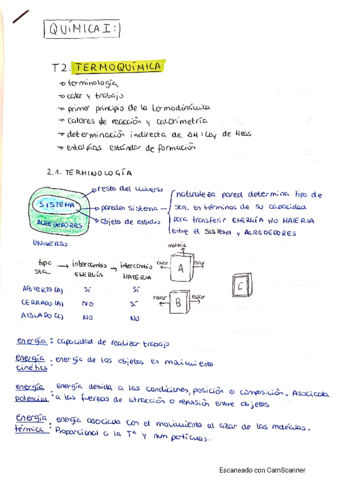 QUÍMICA I:
T2. TERMOQUÍMICA
→ terminología
→ calor y trabajo
→ primer principio de la termodinámica
→ calores de reacción y calorimetría
→ determinación indirecta de ΔH: Ley de Hess
→ entalpías estándar de formación
2.1. TERMINOLOGÍA
→ resto del universo
SISTEMA
→ paredes sistema
→ objeto de estudio
ALREDEDORES
UNIVERSO
naturaleza pared determina tipo de
sea. en términos de su capacidad
para transferir ENERGÍA Y/O MATERIA
entre el SISTEMA y ALREDEDORES
tipo → intercambio → intercambio
ENERGÍA MATERIA
ABIERTO (A) SÍ SÍ
CERRADO (B) NO SÍ
AISLADO (C) NO NO
materia
calor
A
calor
B
C
energía: capacidad de realizar trabajo
energía cinética: energía de los objetos en movimiento
energía potencial: energía debida a las condiciones, posición o composición. Asociada
a las fuerzas de atracción o repulsión entre objetos
energía térmica: energía asociada con el movimiento al azar de las moléculas.
Proporcional a la Tª y num partículas.
Escaneado con CamScanner